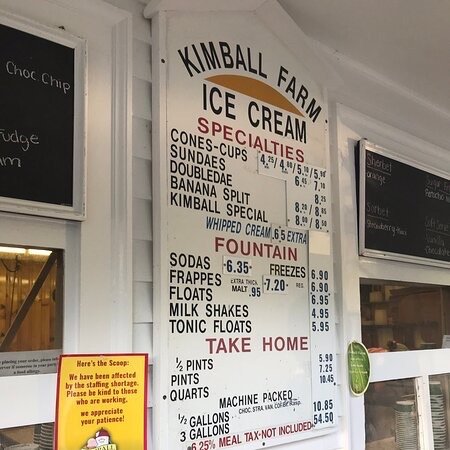 Choc. Chip
Fudge
KIMBALL FARM
ICE CREAM
SPECIALTIES
CONES-CUPS 4.25/4.80/5.10/5.90
SUNDAES 6.45 7.10
DOUBLEDAE 8.25
BANANA SPLIT 8.20/8.85
KIMBALL SPECIAL 8.20/8.50
WHIPPED CREAM .65 EXTRA
FOUNTAIN
SODAS 6.35 FREEZES 6.90
FRAPPES EXTRA THICK MALT .95 7.20 REG. 6.90
FLOATS 6.95
MILK SHAKES 4.95
TONIC FLOATS 5.95
TAKE HOME
½ PINTS 5.90
PINTS 7.25
QUARTS 10.45
MACHINE PACKED
CHOC. STRA. VAN.
½ GALLONS 10.85
3 GALLONS 54.50
6.25% MEAL TAX-NOT INCLUDED
Sherbet
orange
Sorbet
Soft Serve
Vanilla
chocolate
Here's the Scoop:
We have been affected
by the staffing shortage.
Please be kind to those
who are working.
we appreciate
your patience!